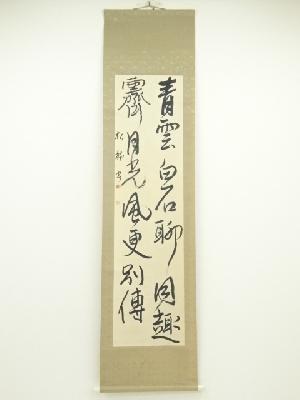 青雲白石聊同趣
霽月光風更別傳